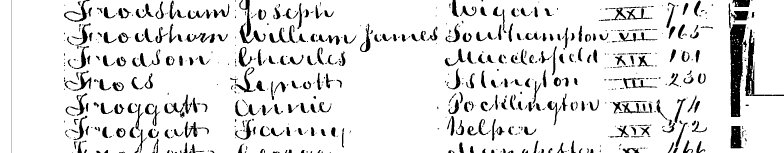 Frodsham Joseph Wigan XXI 716
Frodsham William James Southampton VII 165
Frodsom Charles Macclesfield XIX 101
Froes Islington III 230
Froggatt Annie Pocklington XXIII 74
Froggatt Fanny Belper XIX 372
Manchester XX 466